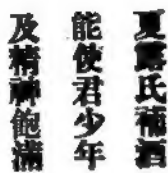 夏露氏補酒
能使君少年
及精神飽滿